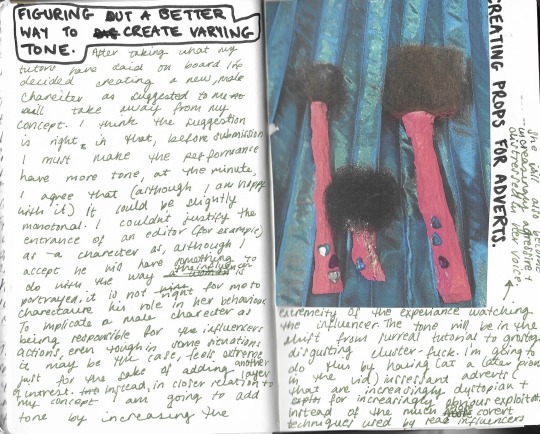 FIGURING OUT A BETTER
WAY TO CREATE VARYING
TONE. After taking what my
tutors have said on board I've
decided creating a new, male
charecter as suggested to me
will take away from my
concept. I think the suggestion
is right, in that, before submission
I must make the performance
have more tone, at the minute,
I agree that (although I am happy
with it) it could be slightly
monotonal. I couldn't justify the
entrance of an editor (for example)
as a charecter as, although I
accept he will have something to
do with the way
portrayed, it is not right for me to
his role in her behaviour
To implicate a male charecter as
being responsible for the influencers
actions, even though in some situations
it may be the case, feels extreme
just for the sake of adding another layer
of interest. Instead, in closer relation to
my concept I am going to add
tone by increasing the
CREATING PROPS FOR ADVERTS.
She will also become
increasingly aggressive +
distressed in her voice
extremity of the experience watching
the influencer. The tone will be in the
shift from surreal tutorial to grotesque
disgusting cluster-fuck. I'm going to
do this by having (at a later point
in the vid) incessant adverts
that are increasingly dystopian +
for increasingly obvious exploitation
instead of the much covert
techniques used by real influencers